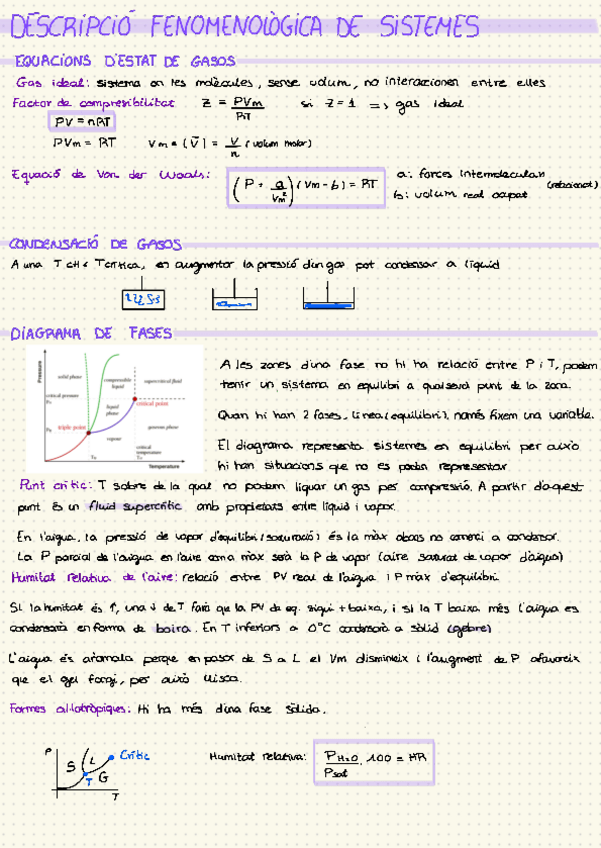 DESCRIPCIÓ FENOMENOLÒGICA DE SISTEMES
EQUACIONS D'ESTAT DE GASOS
Gas ideal: sistema on les molècules, sense volum, no interaccionen entre elles
Factor de compresibilitat Z = PVm / RT si Z=1 => gas ideal
PV = nRT
PVm = RT Vm = (V̄) = V/n (volum molar)
Equació de Van der Waals: (P + a/Vm²)(Vm-b) = RT
a: forces intermolecular
b: volum real ocupat
CONDENSACIÓ DE GASOS
A una T ctt < Tcrítica, en augmentar la pressió d'un gas pot condensar a líquid
DIAGRAMA DE FASES
Pressure
solid phase
compressible liquid
supercritical fluid
critical pressure
liquid phase
critical point
triple point
gaseous phase
vapour
critical temperature
Temperature
A les zones d'una fase no hi ha relació entre P i T, podem
tenir un sistema en equilibri a qualsevol punt de la zona.
Quan hi han 2 fases, línea (equilibri), només fixem una variable.
El diagrama representa sistemes en equilibri per això
hi han situacions que no es poden representar
Punt crític: T sobre de la qual no podem liquar un gas per compressió. A partir d'aquest
punt és un fluid supercrític amb propietats entre líquid i vapor.
En l'aigua, la pressió de vapor d'equilibri (saturació) és la màx abans no comenci a condensar.
La P parcial de l'aigua en l'aire com a màx serà la P de vapor (aire saturat de vapor d'aigua)
Humitat relativa de l'aire: relació entre PV real de l'aigua i P màx d'equilibri.
Si la humitat és ↑, una ↓ de T farà que la PV de eq. sigui + baixa, i si la T baixa més l'aigua es
condensarà en forma de boira. En T inferiors a 0°C condensarà a sòlid (gebre)
L'aigua és anòmala perque en passar de S a L el Vm disminueix i l'augment de P afavoreix
que el gel fongi, per això llisca.
Formes al·lotròpiques: Hi ha més d'una fase sòlida.
P
S L Crític
T G
T
Humitat relativa: P H2O / Psat · 100 = HR